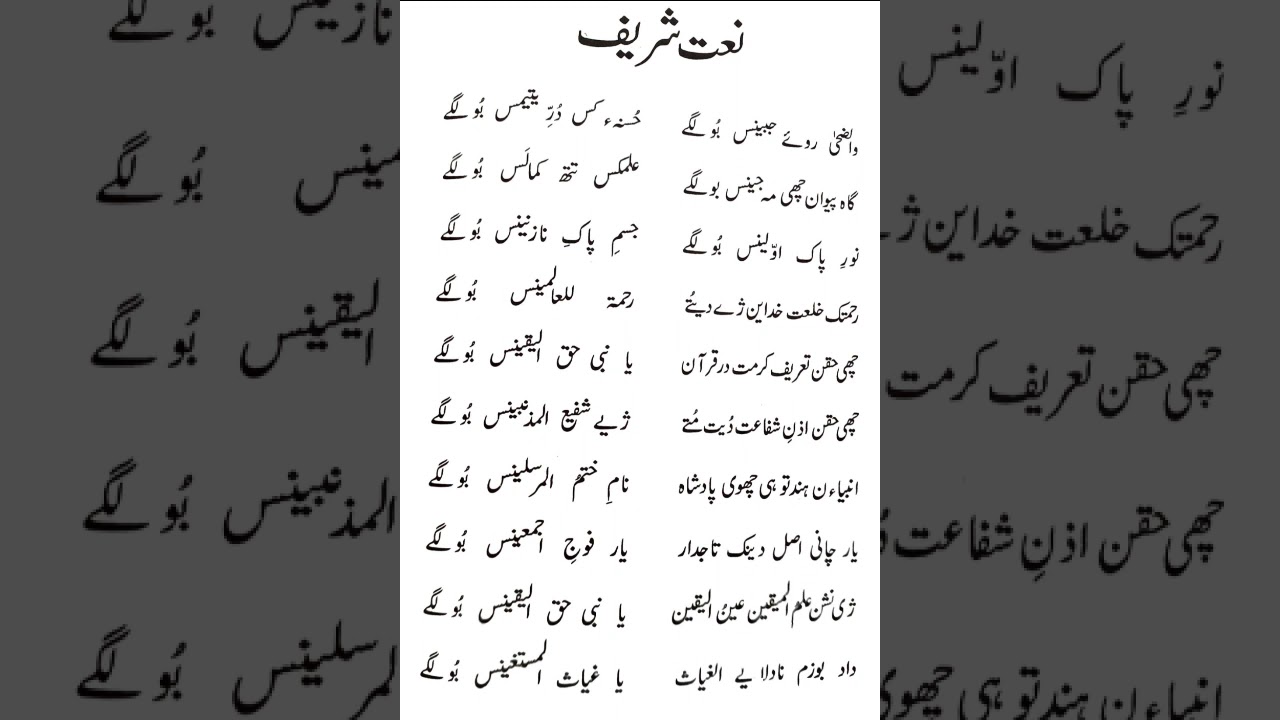 نعت شریف
والضحیٰ روئے جبینس بُو لگے حُسنہٕ کس دُرِّ یتیمس بُو لگے
گاہ پیوان چھی مہ جبینس بو لگے علمکس تتھ کمالَس بُو لگے
نورِ پاک اوّلینس بُو لگے جسمِ پاکِ نازنینس بُو لگے
رحمتک خلعت خداین ژے دیتُے رحمۃ للعالمینس بُو لگے
چھی حقن تعریف کرمت در قرآن یا نبی حق الیقینس بُو لگے
چھی حقن اذنِ شفاعت دُیت مُتے ژیے شفیع المذنبینس بُو لگے
انبیاءن ہند تو ہی چھوی پادشاہ نامِ ختمُ المرسلینس بُو لگے
یار چانی اصل دینک تاجدار یار فوجِ اجمعینس بُو لگے
ژی نشن علم الیقین عینُ الیقین یا نبی حق الیقینس بُو لگے
داد بوزم نادلایے الغیاث یا غیاث المستغینس بُو لگے
نازنینس بُو لگے نورِ پاک اوّلینس
بُو لگے رحمتک خلعت خداین
الیقینس بُو لگے چھی حقن تعریف کرمت
المذنبینس بُو لگے چھی حقن اذنِ شفاعت
المرسلینس بُو لگے انبیاءن ہند تو ہی چھوی